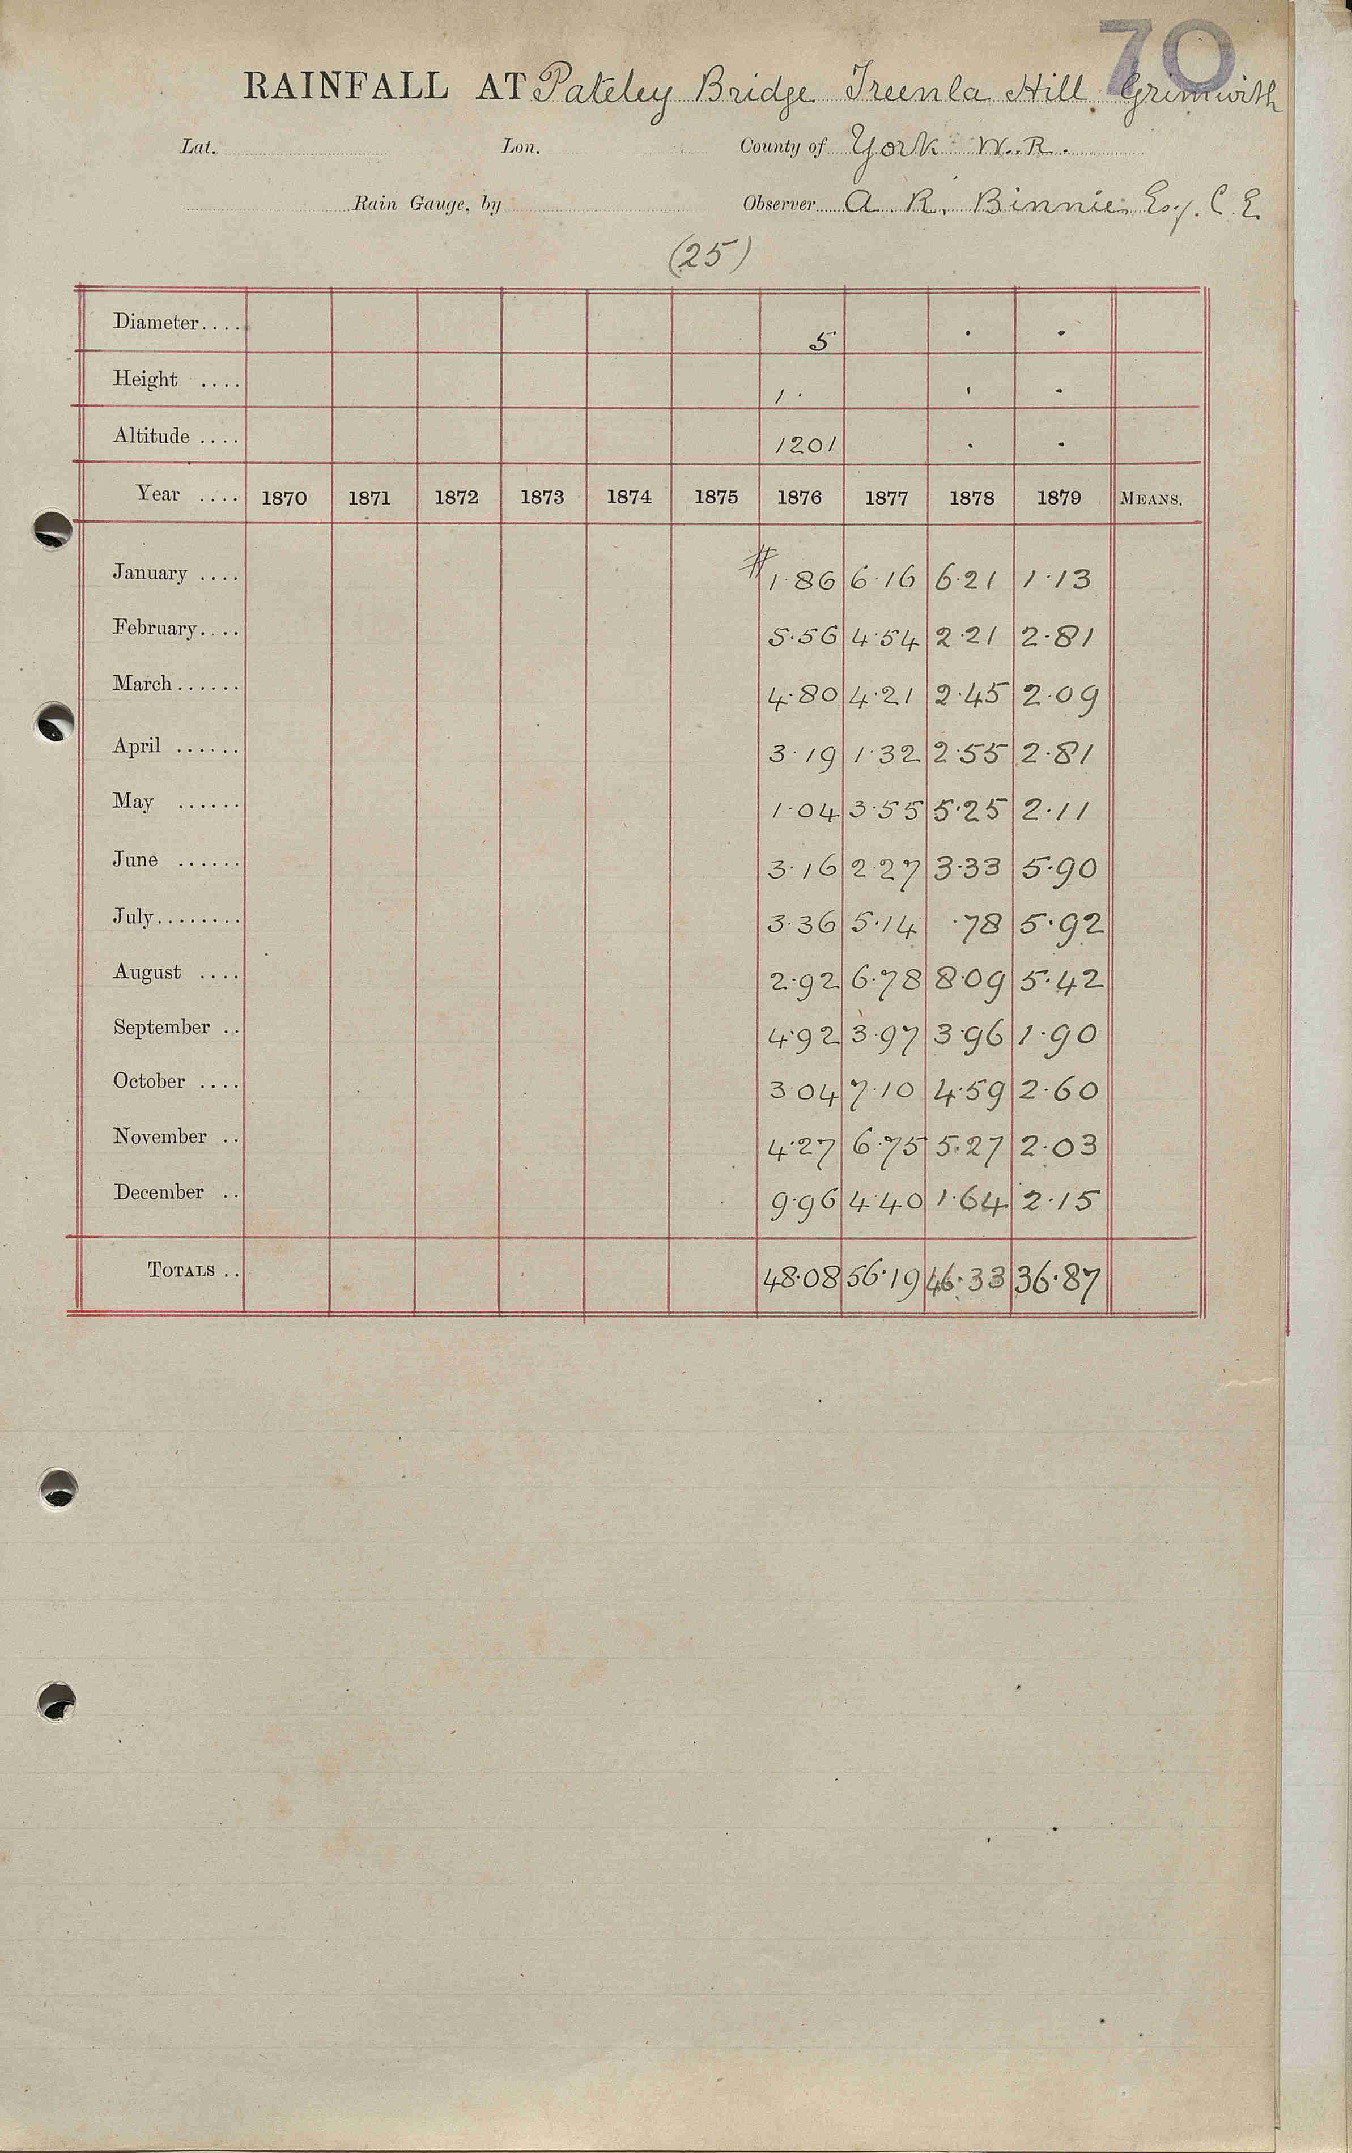 70
RAINFALL AT Pateley Bridge Hill Grimwith
Lat. Lon. County of York W.R.
Rain Gauge, by Observer A. R. Binnie Esq. C.E.
(25)
Diameter.... 5 . .
Height .... 1. . .
Altitude .... 1201 . .
Year .... 1870 1871 1872 1873 1874 1875 1876 1877 1878 1879 MEANS.
January .... # 1.86 6.16 6.21 1.13
February.... 5.56 4.54 2.21 2.81
March...... 4.80 4.21 2.45 2.09
April ...... 3.19 1.32 2.55 2.81
May ...... 1.04 3.55 5.25 2.11
June ...... 3.16 2.27 3.33 5.90
July........ 3.36 5.14 .78 5.92
August .... 2.92 6.78 8.09 5.42
September .. 4.92 3.97 3.96 1.90
October .... 3.04 7.10 4.59 2.60
November .. 4.27 6.75 5.27 2.03
December .. 9.96 4.40 1.64 2.15
TOTALS .. 48.08 56.19 46.33 36.87